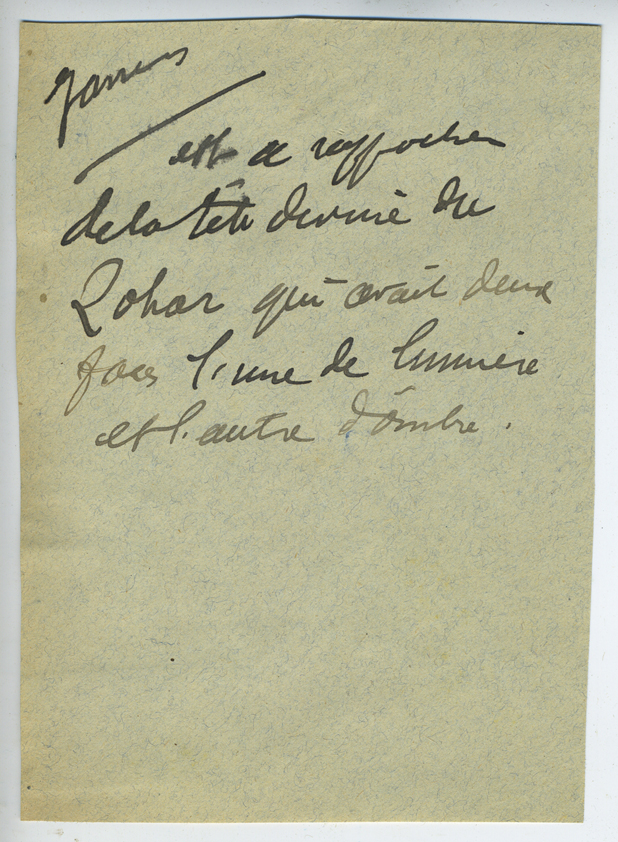 Janus
est a rapprocher
de la tête divine du
Zohar qui avait deux
faces l'une de lumière
et l'autre d'ombre.